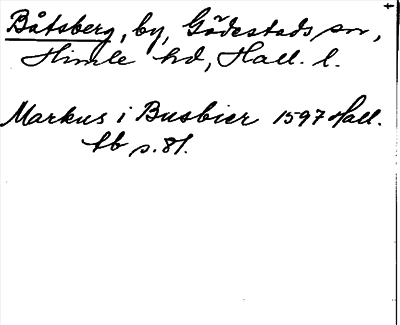 Båtsberg, by, Gödestads sn,
Himle hd, Hall. l.
Markus i Busbier 1597 Hall.
tb s. 81.